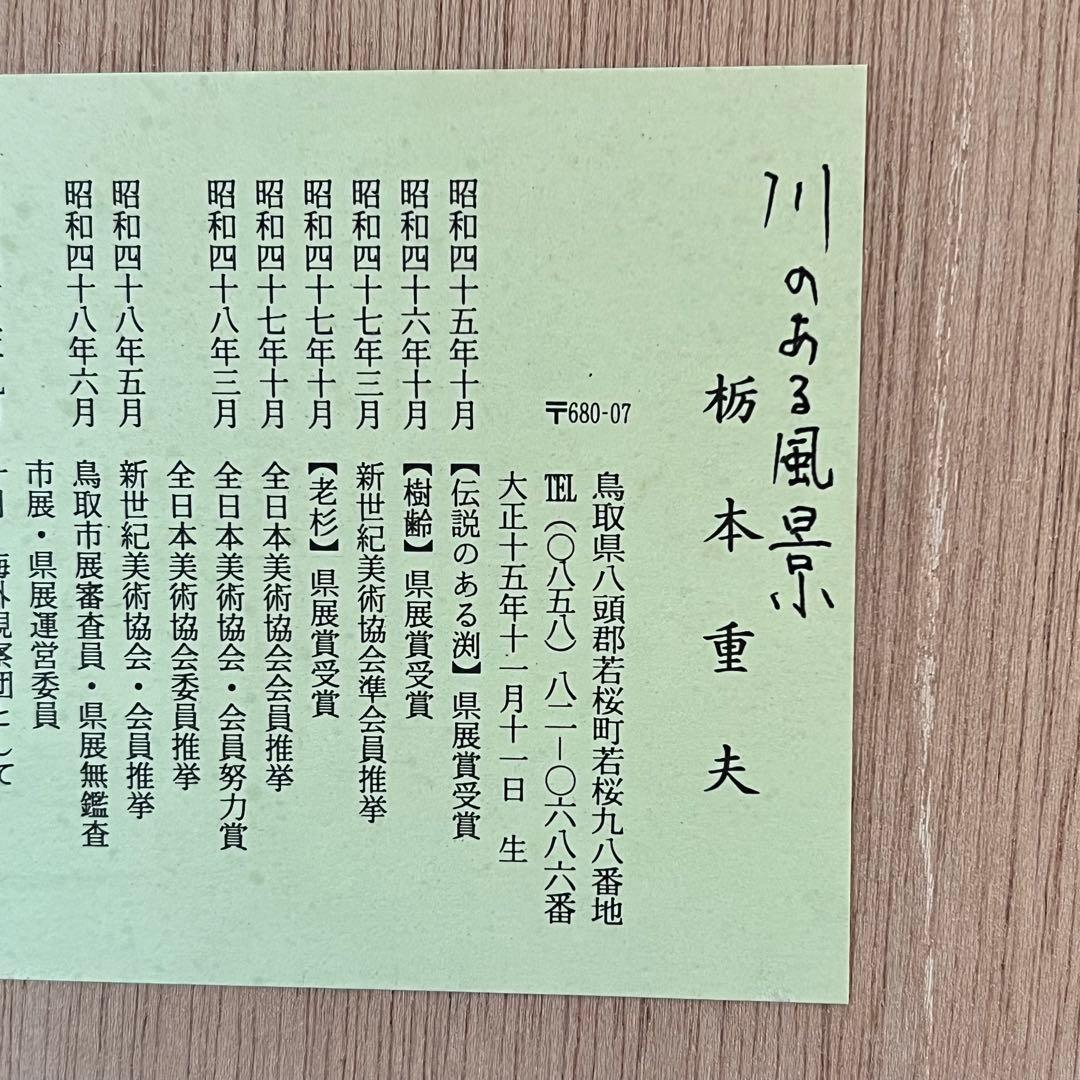 川のある風景
栃本重夫
〒680-07
鳥取県八頭郡若桜町若桜九八番地
TEL(〇八五八)八二−〇六八六番
大正十五年十一月十一日 生
昭和四十五年十月 【伝説のある渕】県展賞受賞
昭和四十六年十月 【樹齢】県展賞受賞
昭和四十七年三月 新世紀美術協会準会員推挙
昭和四十七年十月 【老杉】県展賞受賞
昭和四十七年十月 全日本美術協会会員推挙
昭和四十八年三月 全日本美術協会・会員努力賞
全日本美術協会委員推挙
昭和四十八年五月 新世紀美術協会・会員推挙
昭和四十八年六月 鳥取市展審査員・県展無鑑査
市展・県展運営委員
海外視察団として